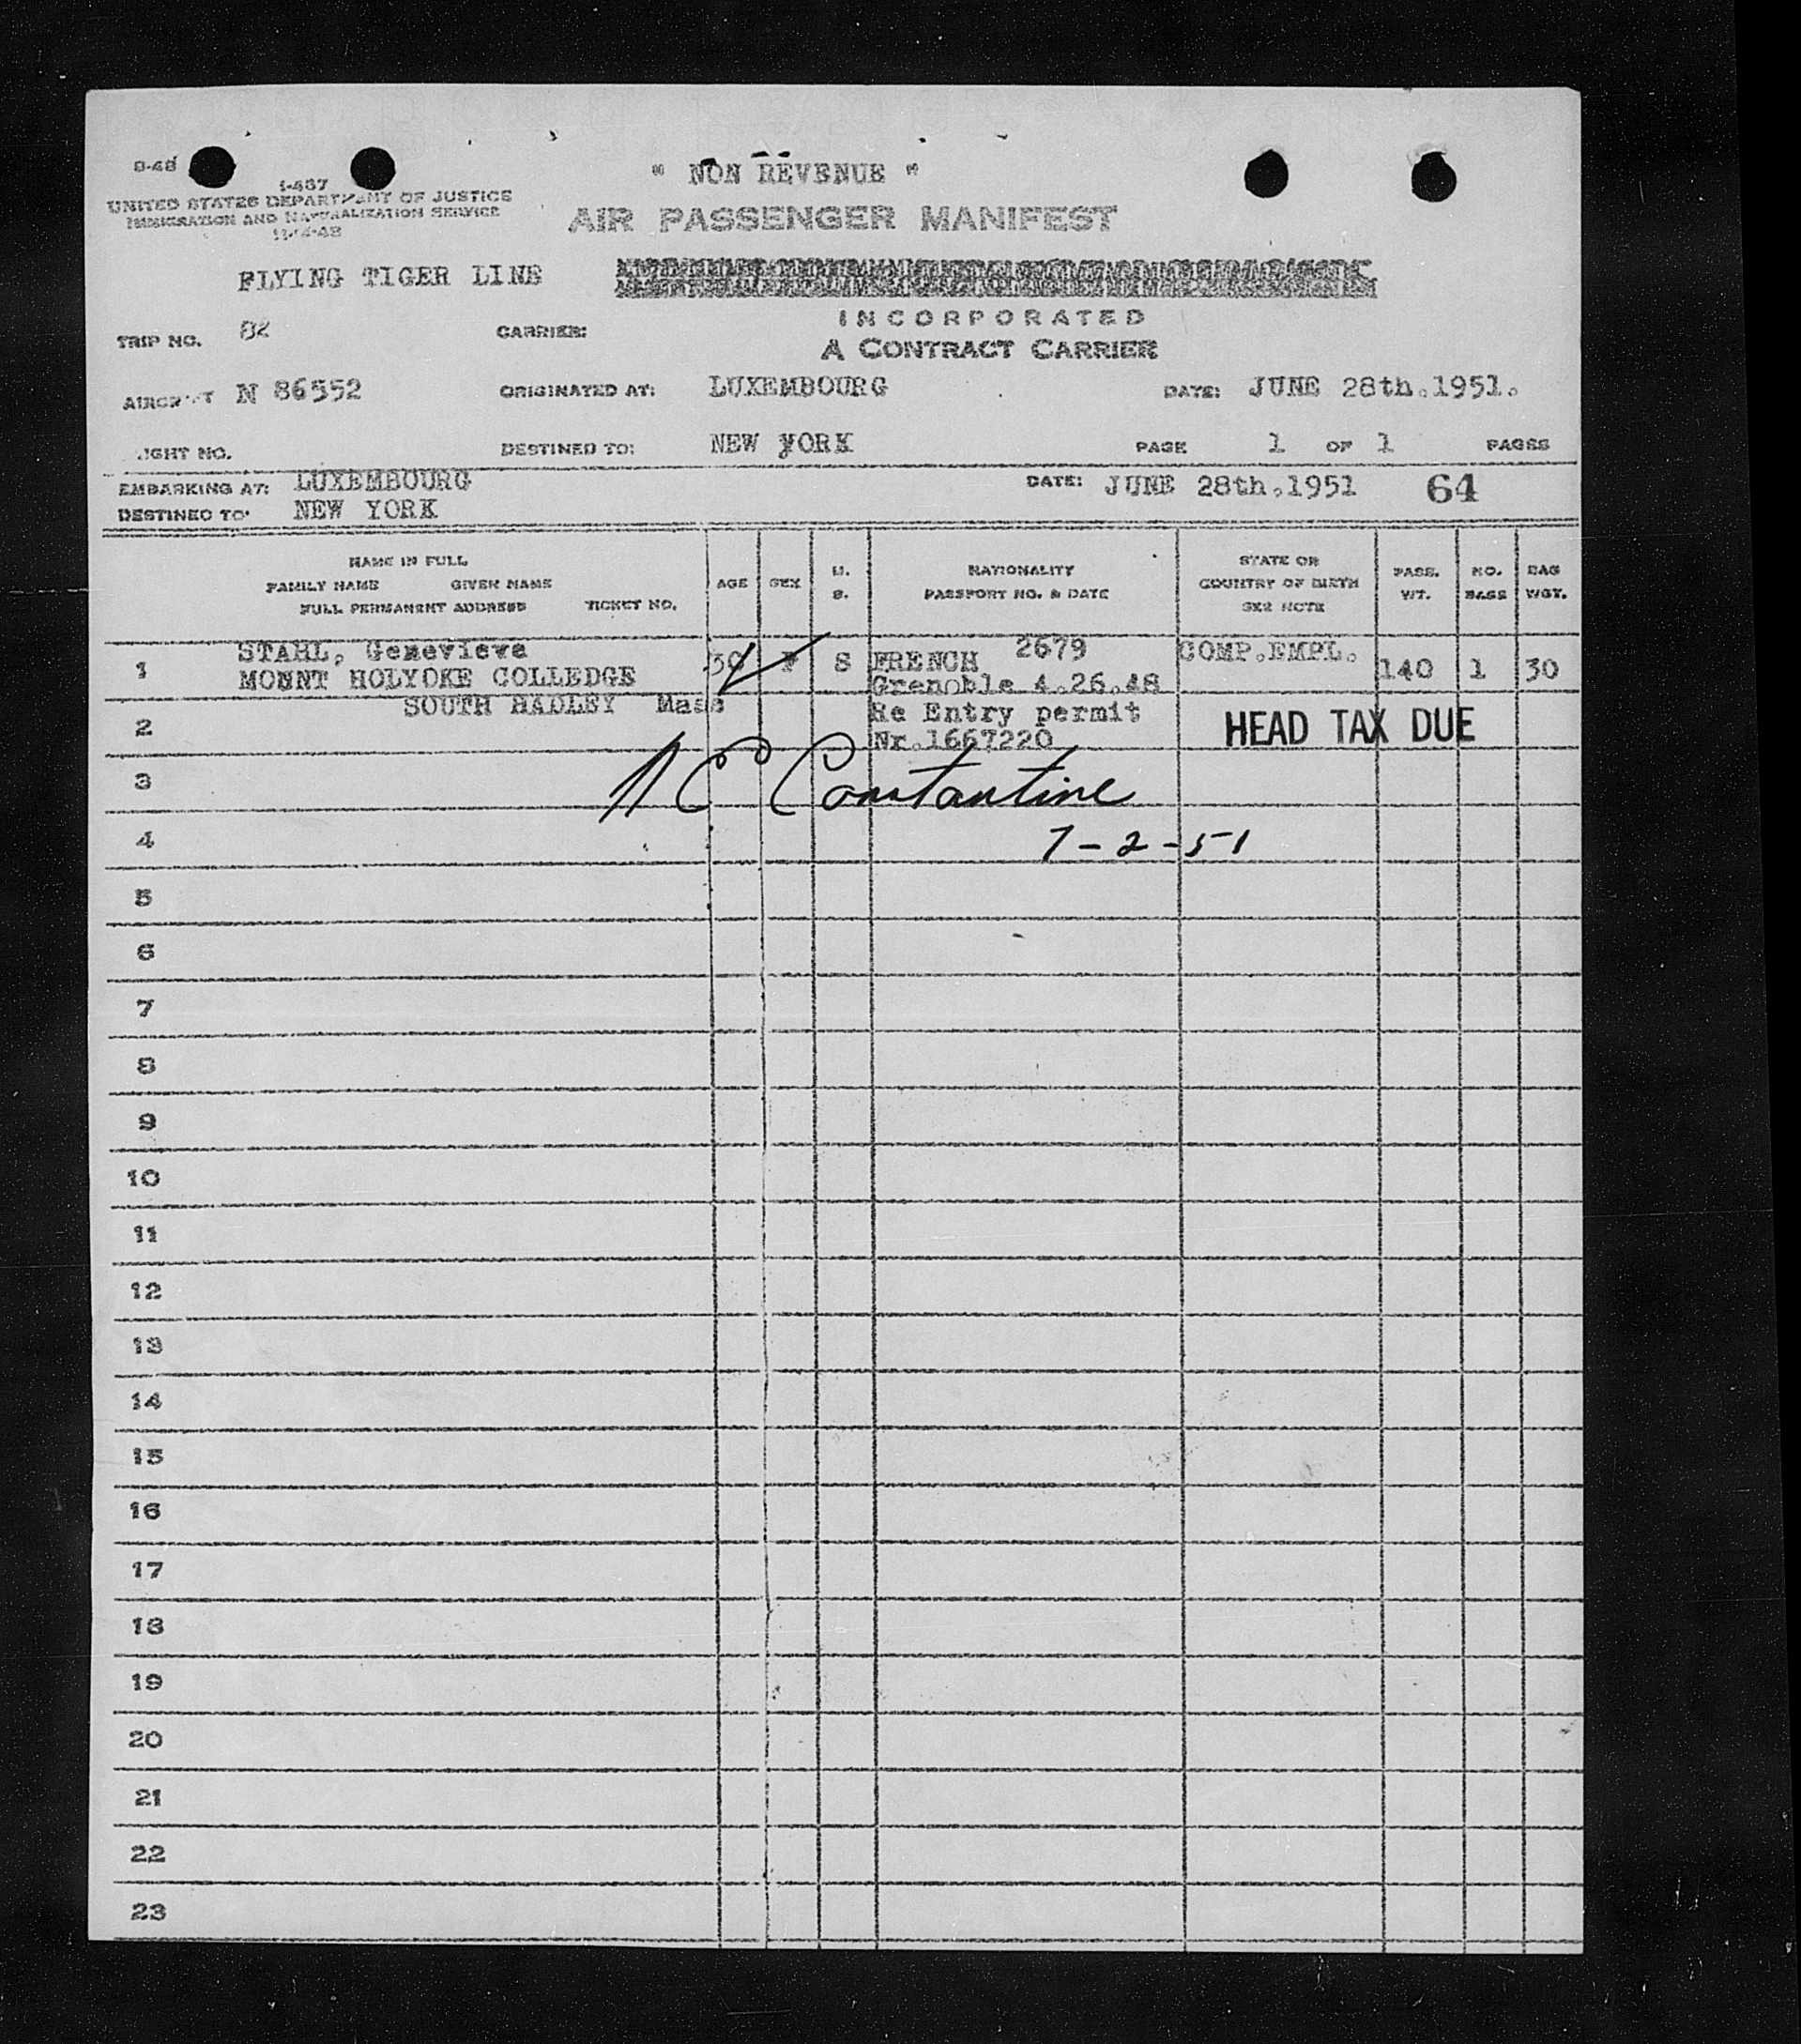 8-48
I-487
UNITED STATES DEPARTMENT OF JUSTICE
IMMIGRATION AND NATURALIZATION SERVICE
" NON REVENUE "
AIR PASSENGER MANIFEST
FLYING TIGER LINE
INCORPORATED
A CONTRACT CARRIER
TRIP NO. 82 CARRIER:
AIRCRAFT N 86552 ORIGINATED AT: LUXEMBOURG DATE: JUNE 28th.1951.
IGHT NO. DESTINED TO: NEW YORK PAGE 1 OF 1 PAGES
EMBARKING AT: LUXEMBOURG DATE: JUNE 28th.1951 64
DESTINED TO: NEW YORK
NAME IN FULL
FAMILY NAME GIVEN NAME
FULL PERMANENT ADDRESS TICKET NO.
AGE
SEX
M.
S.
NATIONALITY
PASSPORT NO. & DATE
STATE OR
COUNTRY OF BIRTH
SEE NOTE
PASS.
WT.
NO.
BAGS
BAG
WGT.
1 STAHL, Genevieve 30 F S FRENCH 2679 COMP.EMPL. 140 1 30
MOUNT HOLYOKE COLLEDGE Grenoble 4.26.48
SOUTH HADLEY Mass Re Entry permit
2 Nr.1667220 HEAD TAX DUE
3 Constantine
4 7-2-51
5
6
7
8
9
10
11
12
13
14
15
16
17
18
19
20
21
22
23